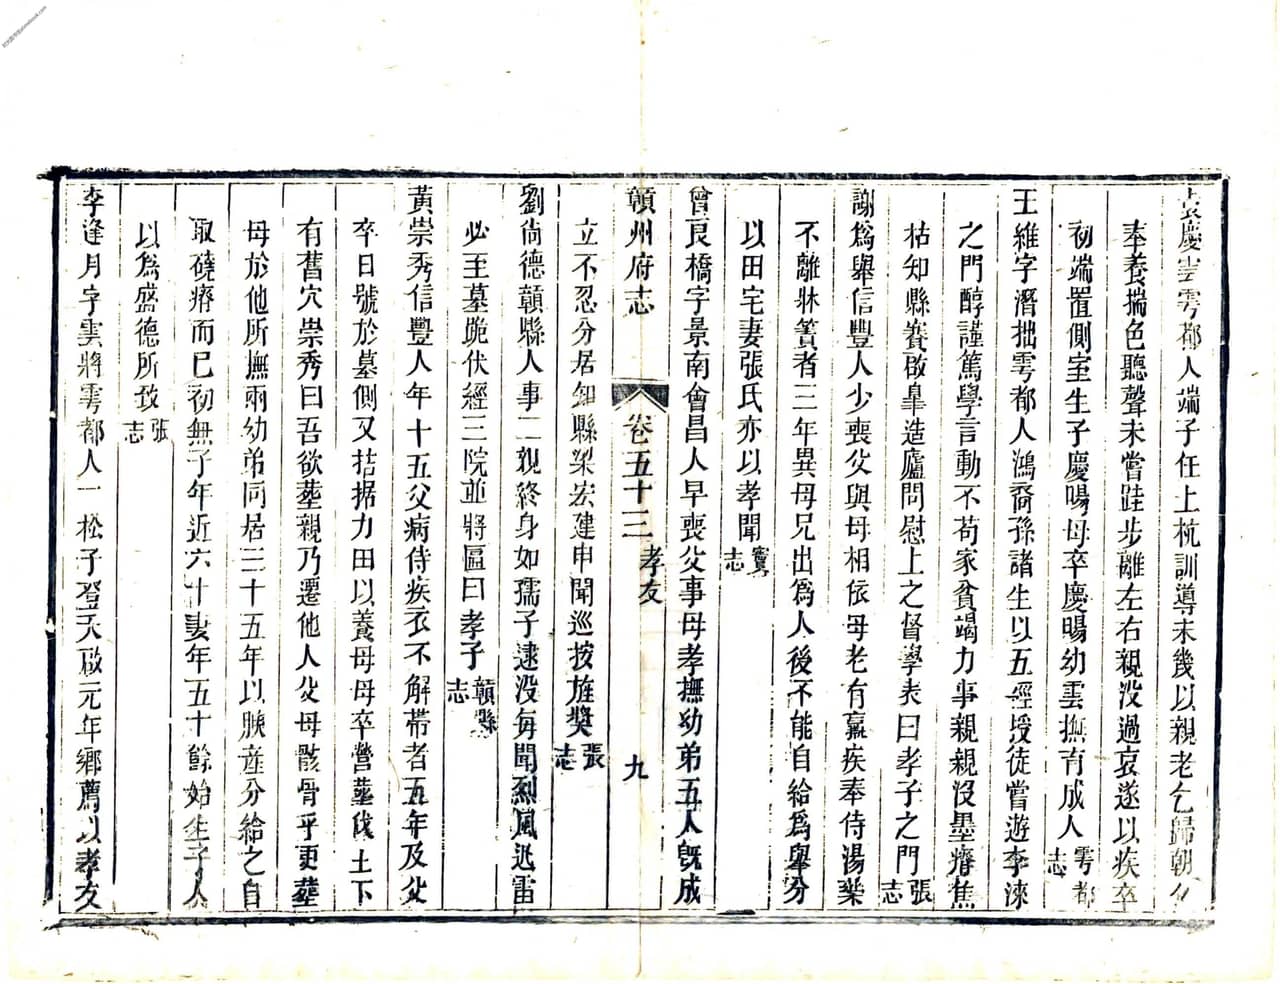 袁慶雲雩都人端子任上杭訓導未幾以親老乞歸朝夕
奉養揣色聽聲未嘗跬步離左右親没過哀遂以疾卒
初端置側室生子慶暘母卒慶暘幼雲撫育成人雩都志
王維字潛拙雩都人鴻裔孫諸生以五經授徒嘗遊李淶
之門醇謹篤學言動不苟家貧竭力事親親沒墨瘠焦
枯知縣養啟臯造廬問慰上之督學表曰孝子之門張志
謝為舉信豐人少喪父與母相依母老有羸疾奉侍湯藥
不離牀簀者三年異母兄出為人後不能自給為舉分
以田宅妻張氏亦以孝聞竇志
曾良橋字景南會昌人早喪父事母孝撫幼弟五人既成
贛州府志 卷五十三 孝友 九
立不忍分居知縣梁宏建申聞巡按旌獎張志
劉尚德贛縣人事二親終身如孺子逮没每聞烈風迅雷
必至墓跪伏經三院並將區曰孝子贛縣志
黃崇秀信豐人年十五父病侍疾衣不解帶者五年及父
卒日號於墓側又拮据力田以養母母卒營葬伐土下
有舊穴崇秀曰吾欲葬親乃遷他人父母骸骨乎更葬
母於他所撫兩幼弟同居三十五年以腴產分給之自
取磽瘠而已初無子年近六十妻年五十餘始生子人
以為盛德所致張志
李逢月字雲將雩都人一松子登天啟元年鄉薦以孝友